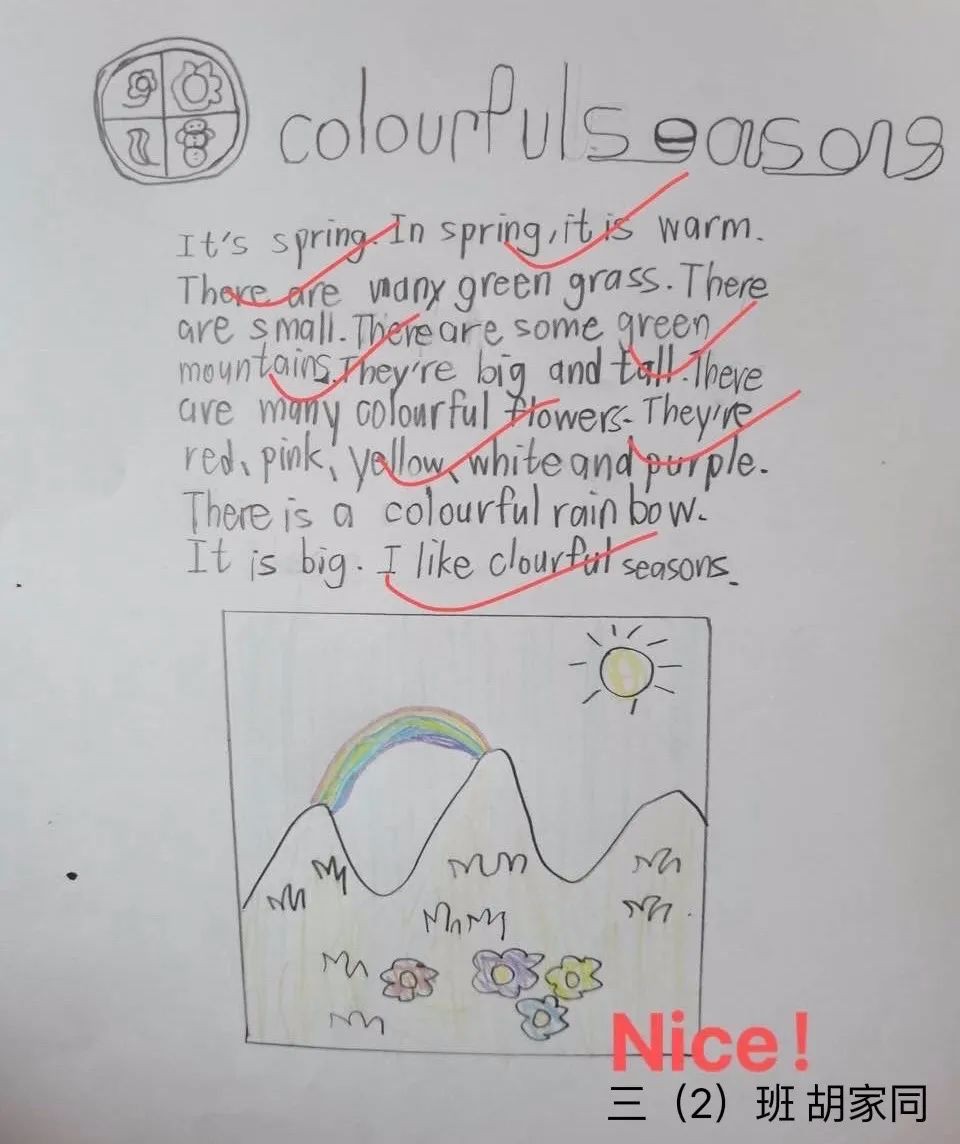 colourful seasons
It's spring. In spring, it is warm.
There are many green grass. There
are small. There are some green
mountains. They're big and tall. There
are many colourful flowers. They're
red、pink、yellow、white and purple.
There is a colourful rainbow.
It is big. I like clourful seasons.
Nice!
三（2）班 胡家同